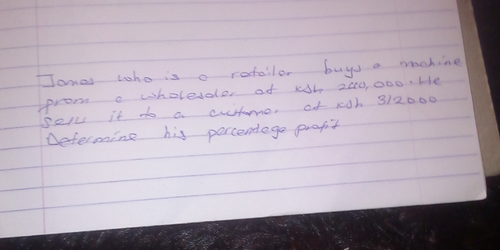 Jonas who is a retailer buys a machine
from a wholesaler at ksh 240,000. He
sells it to a customer at ksh 312000
Determine his percentage profit